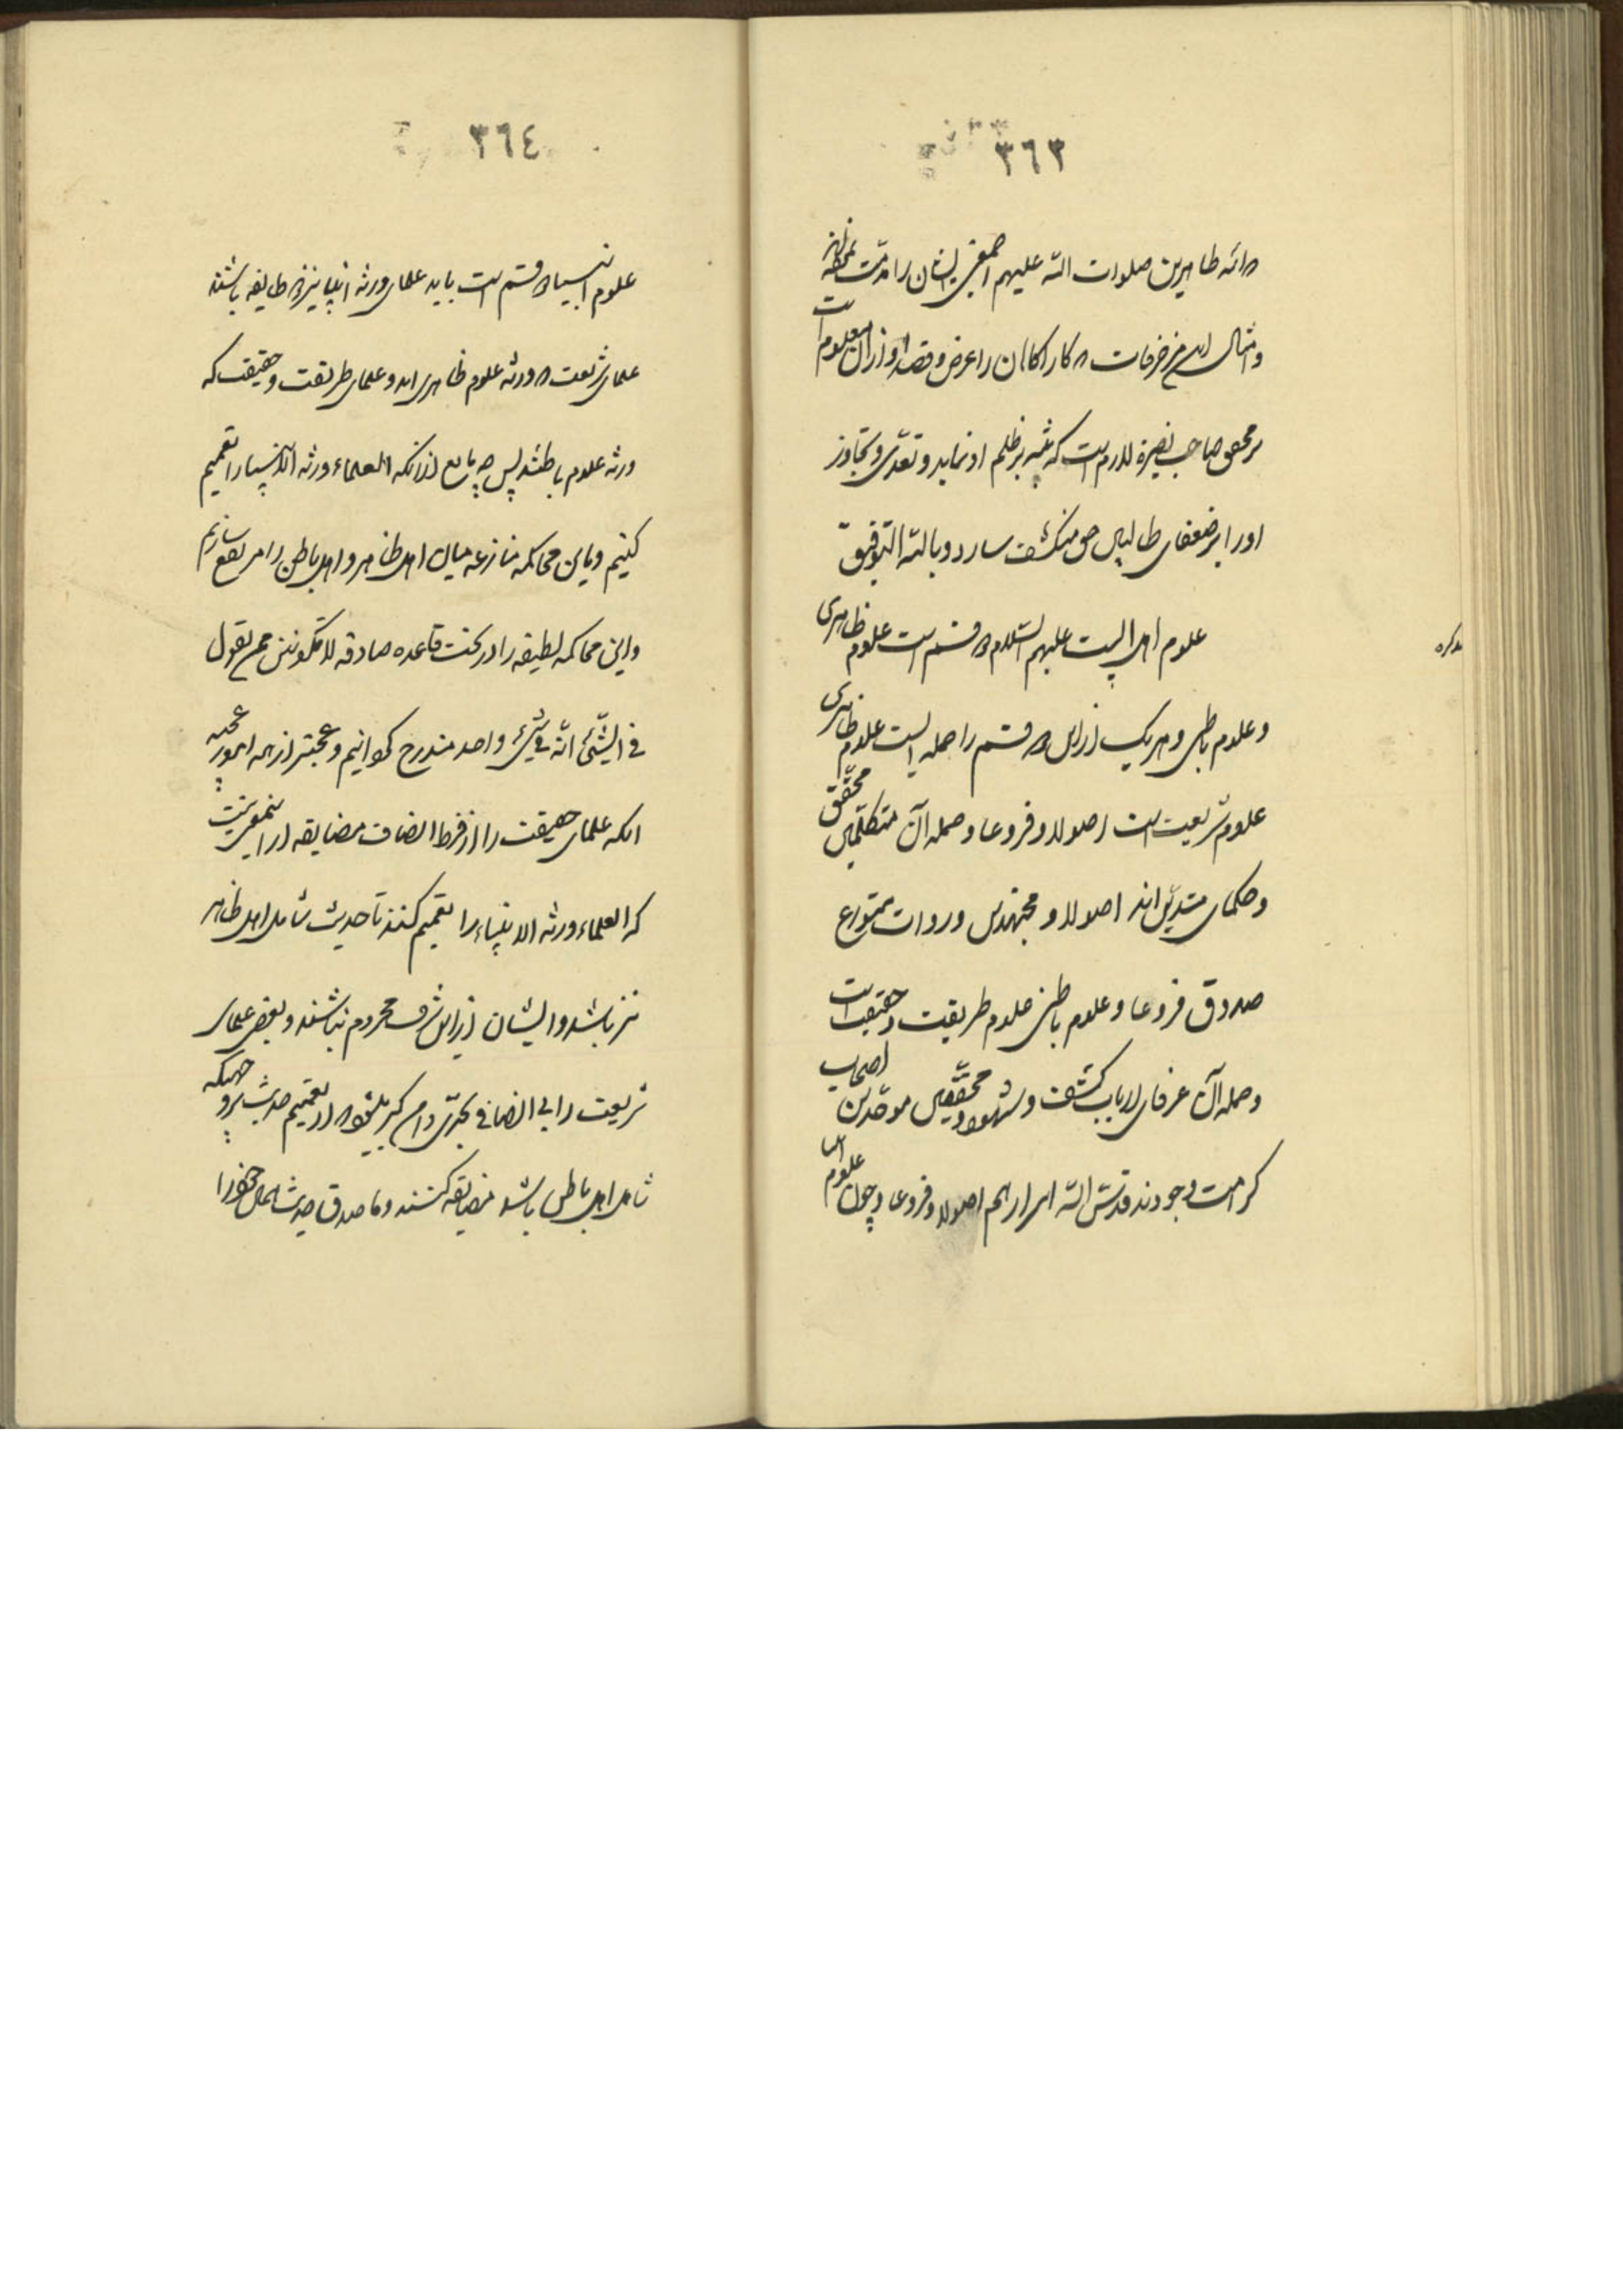 ٣٦٣
ائمه طاهرین صلوات الله علیهم اجمعین ایشان را مذمت
و امثال این مزخرفات کار اکاان را عرض و قصد او از آن معلوم است
بر محق صاحب بصیرة لازم است که تنبیه بر ظلم او نماید و تعدی و تجاوز
او را بر ضعفای طالبان حق منکشف سازد و بالله التوفیق
تذکره
علوم اهل البیت علیهم السلام دو قسم است علوم ظاهری
و علوم باطنی و هر یک از این دو قسم را حمله ایست علوم ظاهری
علوم شریعت است اصولا و فروعا و حمله آن متکلمین محقق
و حکمای متدین اند اصولا و مجتهدین و روات متورع
صدوق فروعا و علوم باطنی علوم طریقت و حقیقت است
و حمله آن عرفای ارباب کشف و شهود و محققین موحدین اصحاب
کرامت وجودند قدس الله اسرارهم اصولا و فروعا و چون علوم
٣٦٤
علوم انبیا دو قسم است باید علمای ورثه انبیا نیز دو طایفه باشند
علمای شریعت که ورثه علوم ظاهری اند و علمای طریقت و حقیقت که
ورثه علوم باطنند پس چه مانع از آنکه العلماء ورثه الانبیا را تعمیم
کنیم و باین محاکمه منازعه میان اهل ظاهر و اهل باطن را مرتفع سازیم
و این محاکمه لطیفه را در تحت قاعده صادقه لا تکونن ممن یقول
فی الشئ انه فی شئ واحد مندرج گردانیم و عجبتر از همه امور عجیبه
آنکه علمای حقیقت را از فرط انصاف مضایقه از این معنی نیست
که العلماء ورثه الانبیاء را تعمیم کنند تا حدیث شامل اهل ظاهر
نیز باشد و ایشان از این شرف محروم نباشند و بعض علمای
شریعت را بی انصافی بحدی دامن گیر میشود که از تعمیم حدیث بروجهیکه
شامل اهل باطن باشد مضایقه کنند و ما صدق حدیث شامل خود را